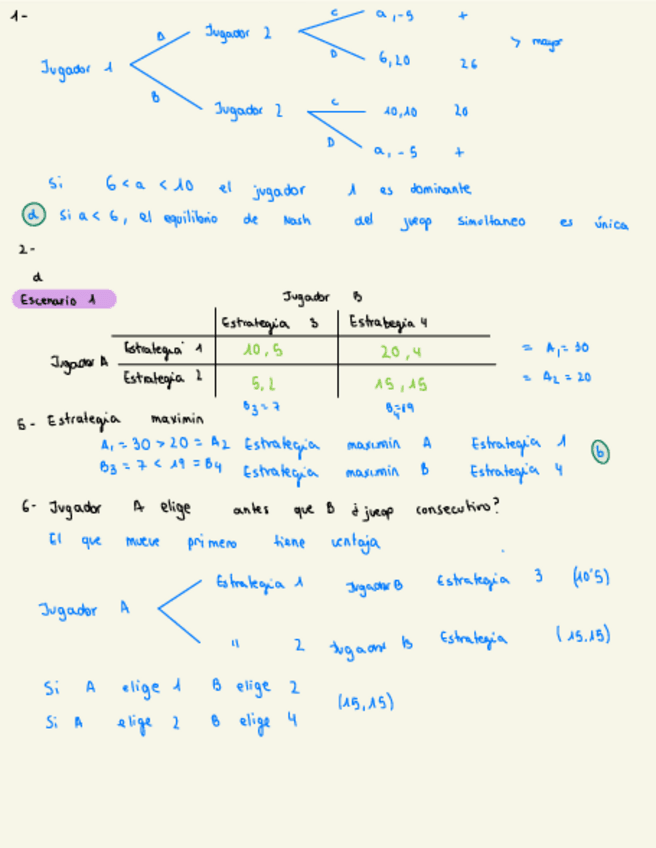 1-
Jugador 1
A
Jugador 2
C
a,-5
+
D
6,20
26
> mayor
B
Jugador 2
C
10,10
20
D
a,-5
+
Si 6 < a < 10 el jugador 1 es dominante
d Si a < 6, el equilibrio de Nash del juego simultaneo es única
2-
d
Escenario 1
Jugador B
Estrategia 3 Estrategia 4
Jugador A
Estrategia 1 10,5 20,4 = A1 = 30
Estrategia 2 5,2 15,15 = A2 = 20
B3 = 7 B4 = 19
5- Estrategia maximin
A1 = 30 > 20 = A2 Estrategia maximin A Estrategia 1 b
B3 = 7 < 19 = B4 Estrategia maximin B Estrategia 4
6- Jugador A elige antes que B ¿juego consecutivo?
El que mueve primero tiene ventaja
Jugador A
Estrategia 1 Jugador B Estrategia 3 (10'5)
" 2 Jugador B Estrategia (15.15)
Si A elige 1 B elige 2
(15,15)
Si A elige 2 B elige 4